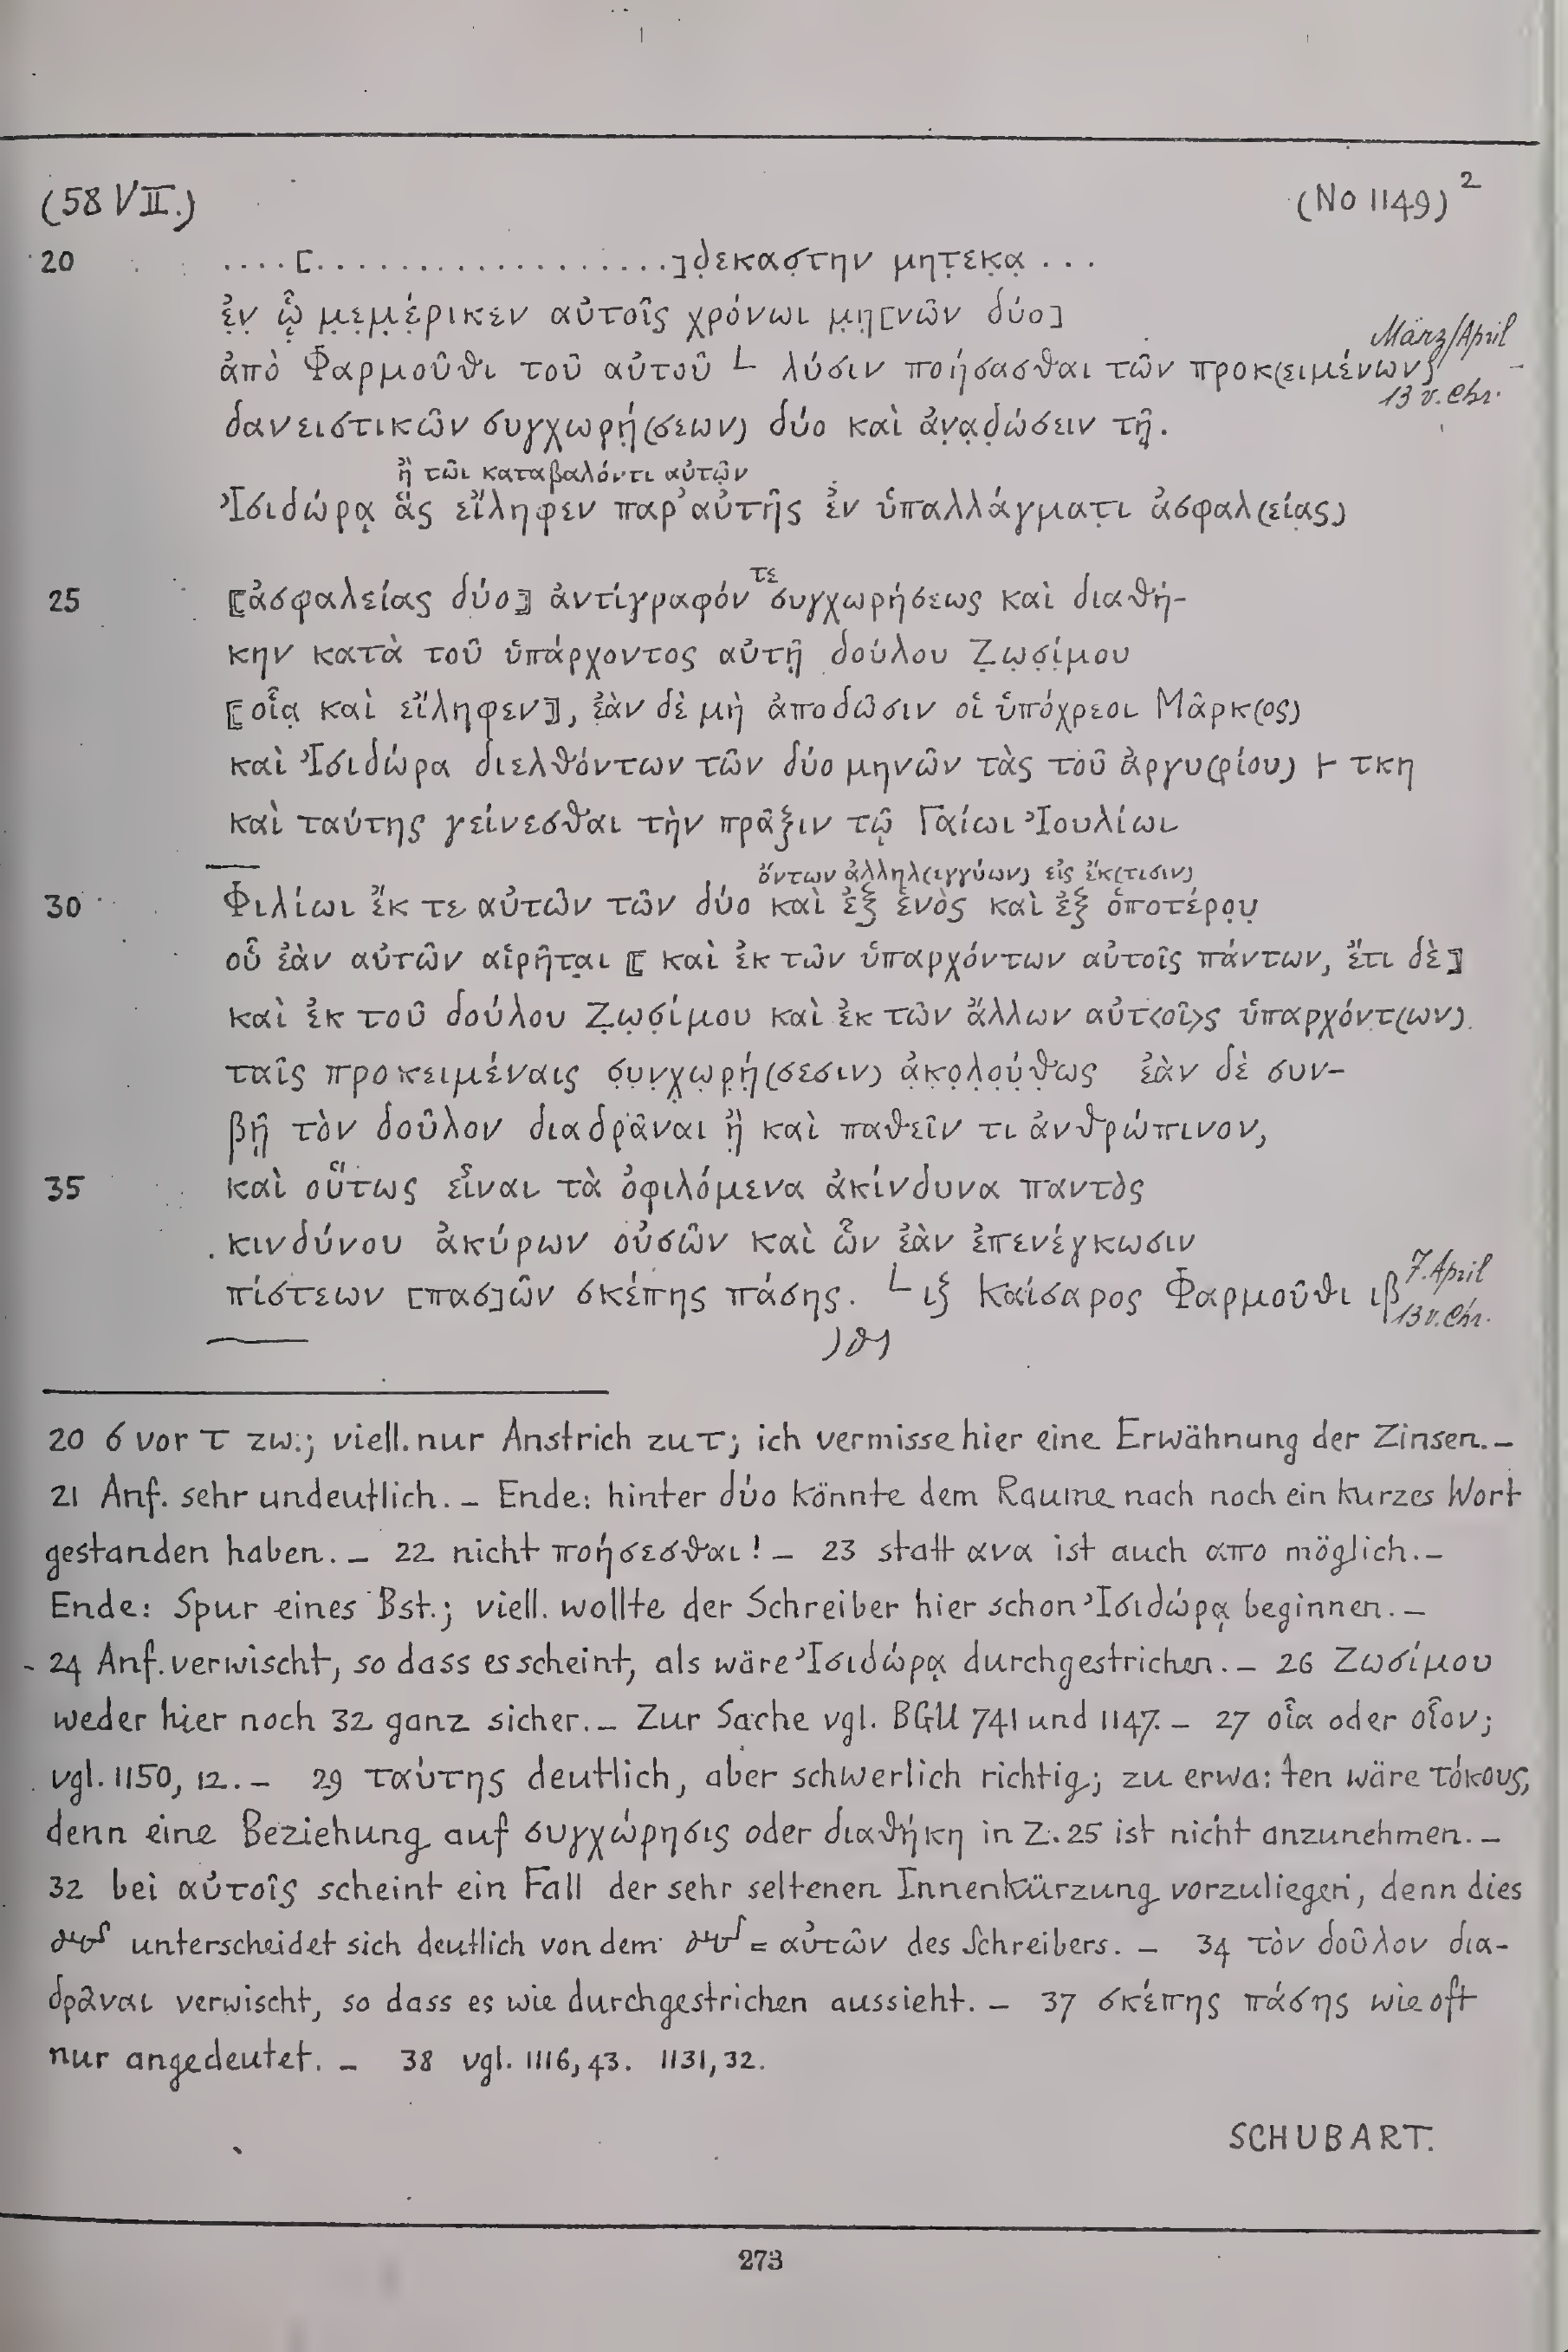 (58 VII.) (No 1149)²
20 ....[...................]δ̣εκασ̣την μητ̣εκ̣α̣ ...
ἐ̣ν̣ ᾧ̣ μ̣ε̣μ̣έ̣ρικεν αὐτοῖς χρόνωι μ̣η̣[νῶν δύο]
März/April
ἀπὸ Φαρμοῦθι τοῦ αὐτοῦ L λύσιν ποήσασθαι τῶν προκ(ειμένων)
13 v. Chr.
δανειστικῶν συγχωρή̣(σεων) δύο καὶ ἀ̣ν̣α̣δ̣ώσειν τῇ̣.
ἢ̣ τῶι καταβαλόντι αὐτῶ̣ν
Ἰσιδώρᾳ ἃ̣ς εἴ̣ληφεν παρ' αὐτῆς ἐ̣ν ὑπαλλάγματ̣ι ἀσφαλ(είας)
τε
25 ⟦ἀσφαλείας δύο⟧ ἀντίγραφόν συγχωρήσεως καὶ διαθή-
κην κατὰ τοῦ ὑπάρχοντος αὐτῇ δούλου Ζ̣ω̣σ̣ί̣μου
⟦οἷα̣ καὶ εἴληφεν⟧, ἐ̣ὰν δὲ μὴ ἀποδῶσιν οἱ ὑπόχρεοι Μᾶρκ(ος)
καὶ Ἰσιδώρα διελθόντων τῶν δύο μηνῶν τὰς τοῦ ἀ̣ργυ(ρίου) ⊢ τκη
καὶ ταύτης γείνεσθαι τὴν πρᾶξιν τῷ̣ Γαίωι Ἰουλίωι
ὄντων ἀ̣λληλ(εγγύων) εἰς ἔκ(τισιν)
30 Φιλίωι ἔκ τε αὐτῶν τῶν δύο καὶ ἐξ ἑνὸς καὶ ἐξ ὁποτέρο̣υ̣
οὗ ἐὰν αὐτῶν αἱρῆτ̣αι ⟦καὶ ἐκ τῶν ὑπαρχόντων αὐτοῖς πάντων, ἔτι δὲ⟧
καὶ ἐκ τοῦ δούλου Ζ̣ω̣σ̣ίμου καὶ ἐκ τῶν ἄλλων αὐτ<οῖ>ς ὑπαρχόντ(ων)
ταῖς προκειμέναις σ̣υ̣ν̣χ̣ω̣ρ̣ή̣(σεσιν) ἀ̣κ̣ο̣λ̣ο̣ύ̣θ̣ως ἐὰν δὲ συν-
βῇ τὸν δοῦλον διαδρᾶναι ἢ̣ καὶ παθεῖν τι ἀνθρώπινον,
35 καὶ οὕτως εἶναι τὰ ὀφιλόμενα ἀκίνδυνα παντὸς
κινδύνου ἀκύρων οὐσῶν καὶ ὧν ἐὰν ἐπενέγκωσιν
πίστεων [πασ]ῶν σκέπης πάσης. L ιξ Καίσαρος Φαρμοῦθι ιβ 7. April
13 v. Chr.
)θ)
20 σ vor τ zw.; viell. nur Anstrich zu τ; ich vermisse hier eine Erwähnung der Zinsen. —
21 Anf. sehr undeutlich. — Ende: hinter δύο könnte dem Raume nach noch ein kurzes Wort
gestanden haben. — 22 nicht ποήσεσθαι! — 23 statt ανα ist auch απο möglich. —
Ende: Spur eines Bst.; viell. wollte der Schreiber hier schon Ἰσιδώρᾳ beginnen. —
24 Anf. verwischt, so dass es scheint, als wäre Ἰσιδώρᾳ durchgestrichen. — 26 Ζωσίμου
weder hier noch 32 ganz sicher. — Zur Sache vgl. BGU 741 und 1147. — 27 οἷα oder οἷον;
vgl. 1150, 12. — 29 ταύτης deutlich, aber schwerlich richtig; zu erwarten wäre τόκους,
denn eine Beziehung auf συγχώρησις oder διαθήκη in Z. 25 ist nicht anzunehmen. —
32 bei αὐτοῖς scheint ein Fall der sehr seltenen Innenkürzung vorzuliegen, denn dies
unterscheidet sich deutlich von dem = αὐτῶν des Schreibers. — 34 τὸν δοῦλον δια-
δρᾶναι verwischt, so dass es wie durchgestrichen aussieht. — 37 σκέπης πάσης wie oft
nur angedeutet. — 38 vgl. 1116, 43. 1131, 32.
SCHUBART.
273